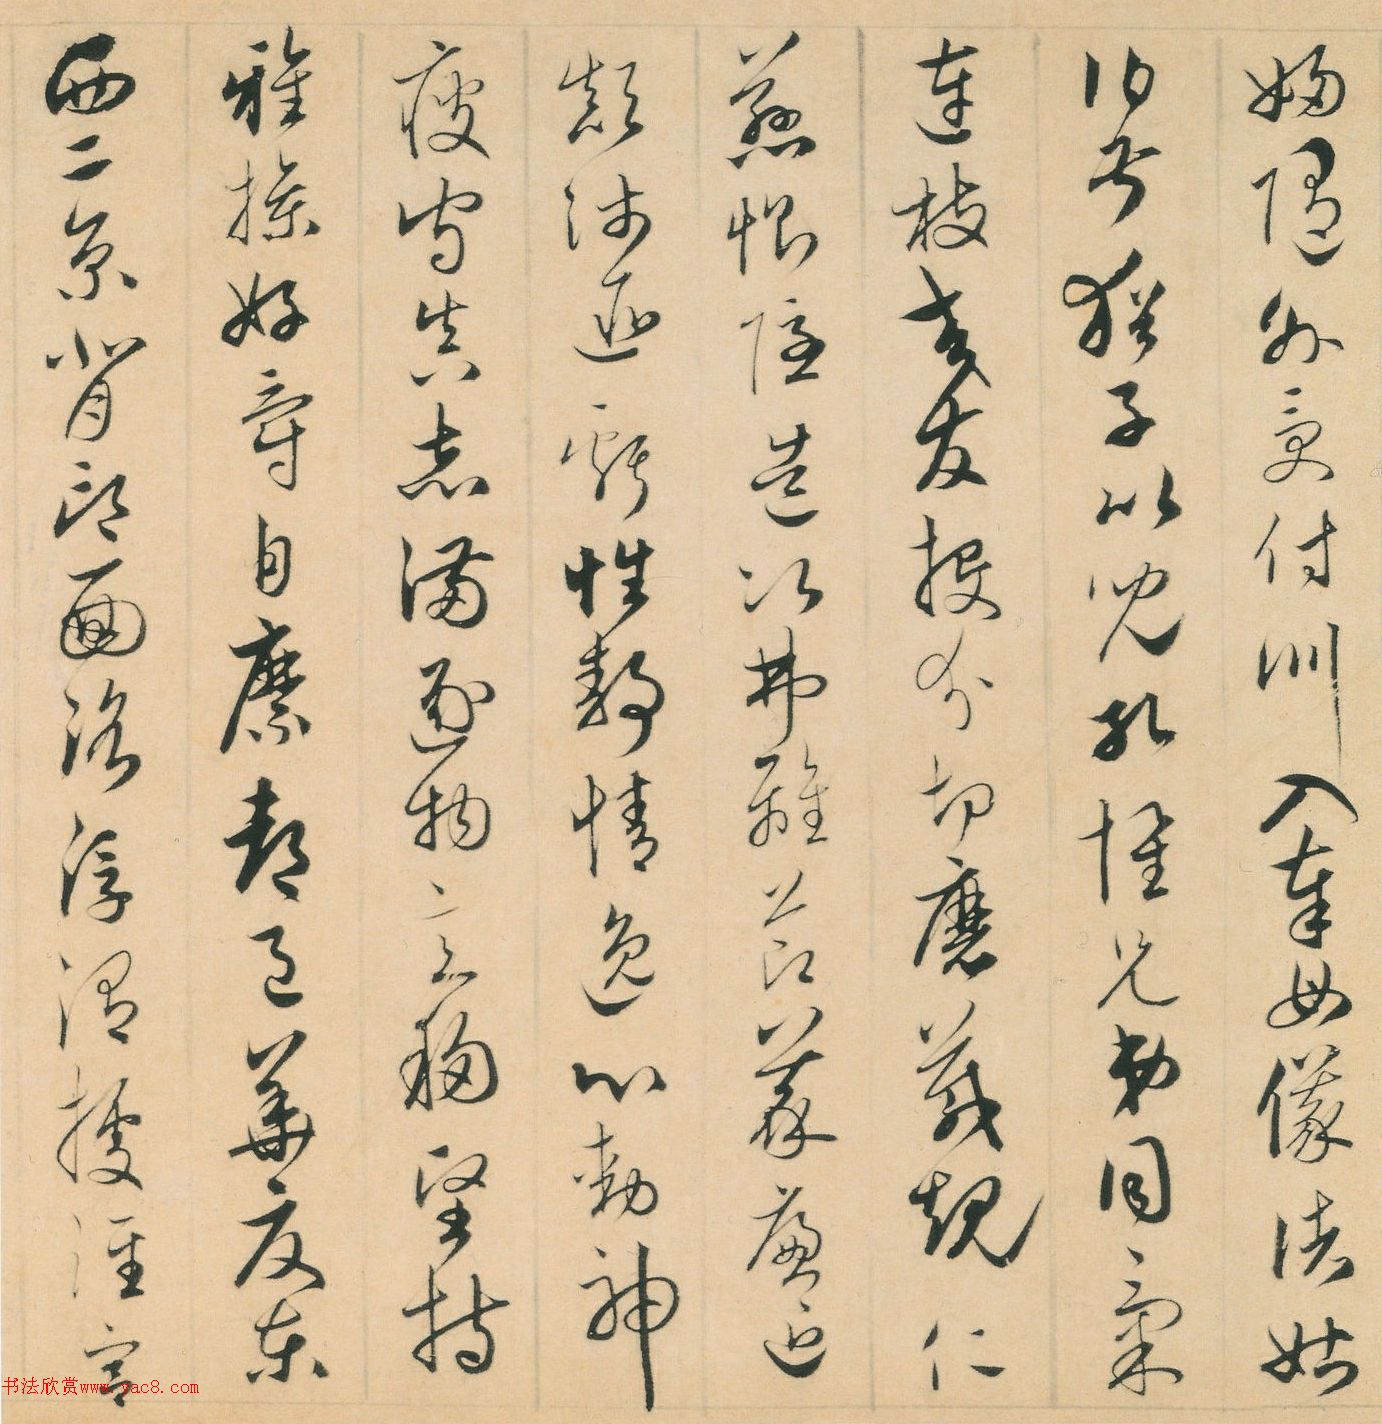 婦隨外受傅訓入奉母儀諸姑
伯叔猶子比兒孔懷兄弟同氣
連枝交友投分切磨箴規仁
慈惻隱造次弗離節義廉退
顛沛匪虧性靜情逸心動神
疲守真志滿逐物意移堅持
雅操好爵自縻都邑華夏東
西二京背邙面洛浮渭據涇宮
书法欣赏www.yac8.com